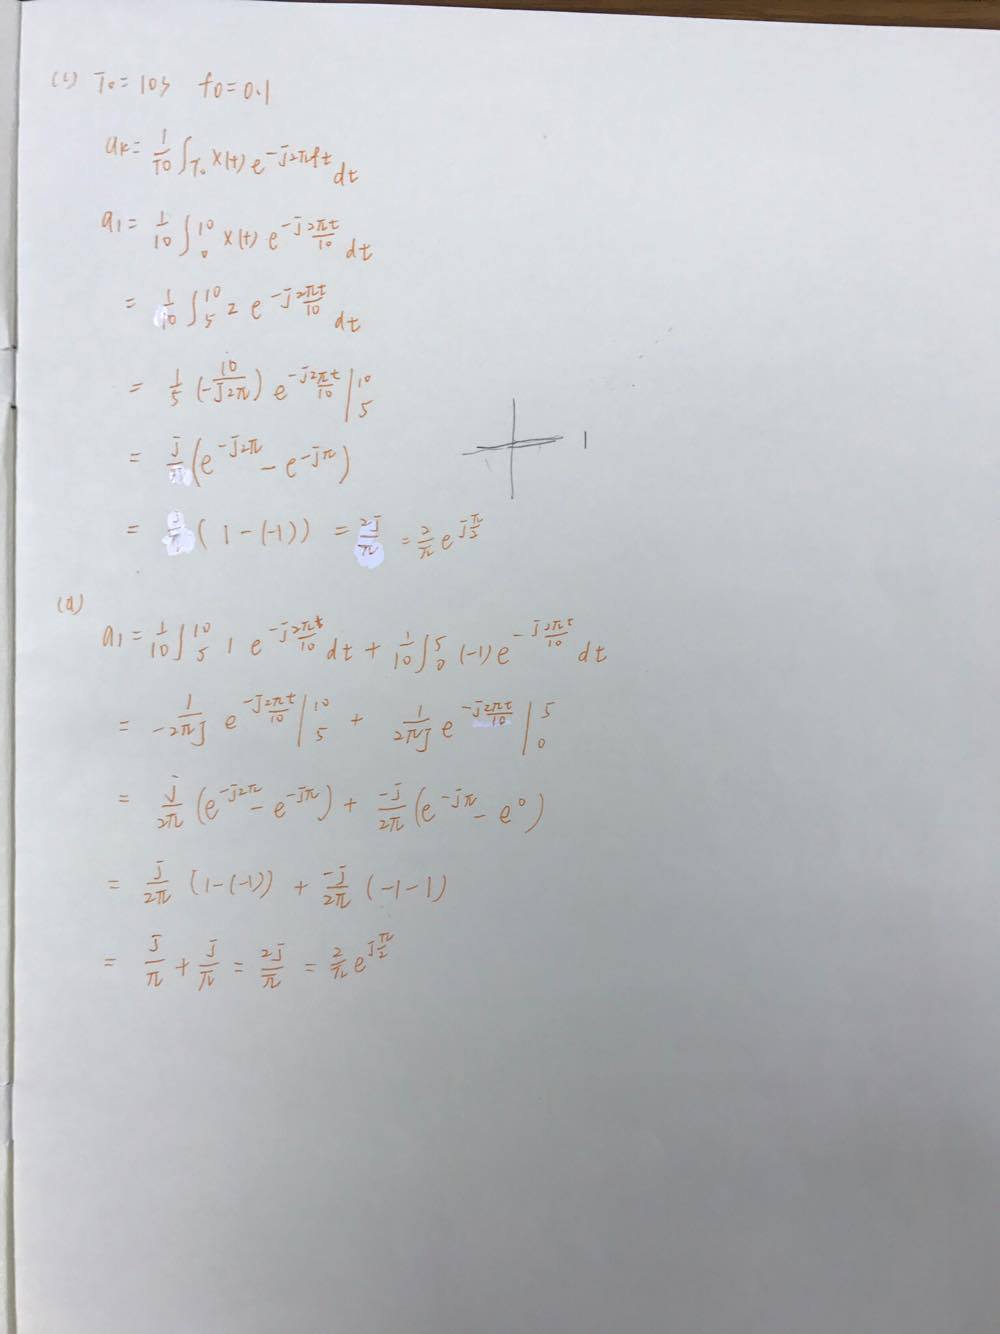 (c) T₀ = 10s f₀ = 0.1
aₖ = 1/10 ∫_T₀ x(t) e^(-j2πft) dt
a₁ = 1/10 ∫_0^10 x(t) e^(-j2πt/10) dt
= 1/10 ∫_5^10 2 e^(-j2πt/10) dt
= 1/5 (-10/j2π) e^(-j2πt/10) |_5^10
= j/π (e^(-j2π) - e^(-jπ))
1
= j/π (1-(-1)) = 2j/π = 2/π e^(jπ/2)
(d)
a₁ = 1/10 ∫_5^10 1 e^(-j2πt/10) dt + 1/10 ∫_0^5 (-1) e^(-j2πt/10) dt
= 1/(-2πj) e^(-j2πt/10) |_5^10 + 1/(2πj) e^(-j2πt/10) |_0^5
= j/2π (e^(-j2π) - e^(-jπ)) + -j/2π (e^(-jπ) - e^0)
= j/2π (1-(-1)) + -j/2π (-1-1)
= j/π + j/π = 2j/π = 2/π e^(jπ/2)